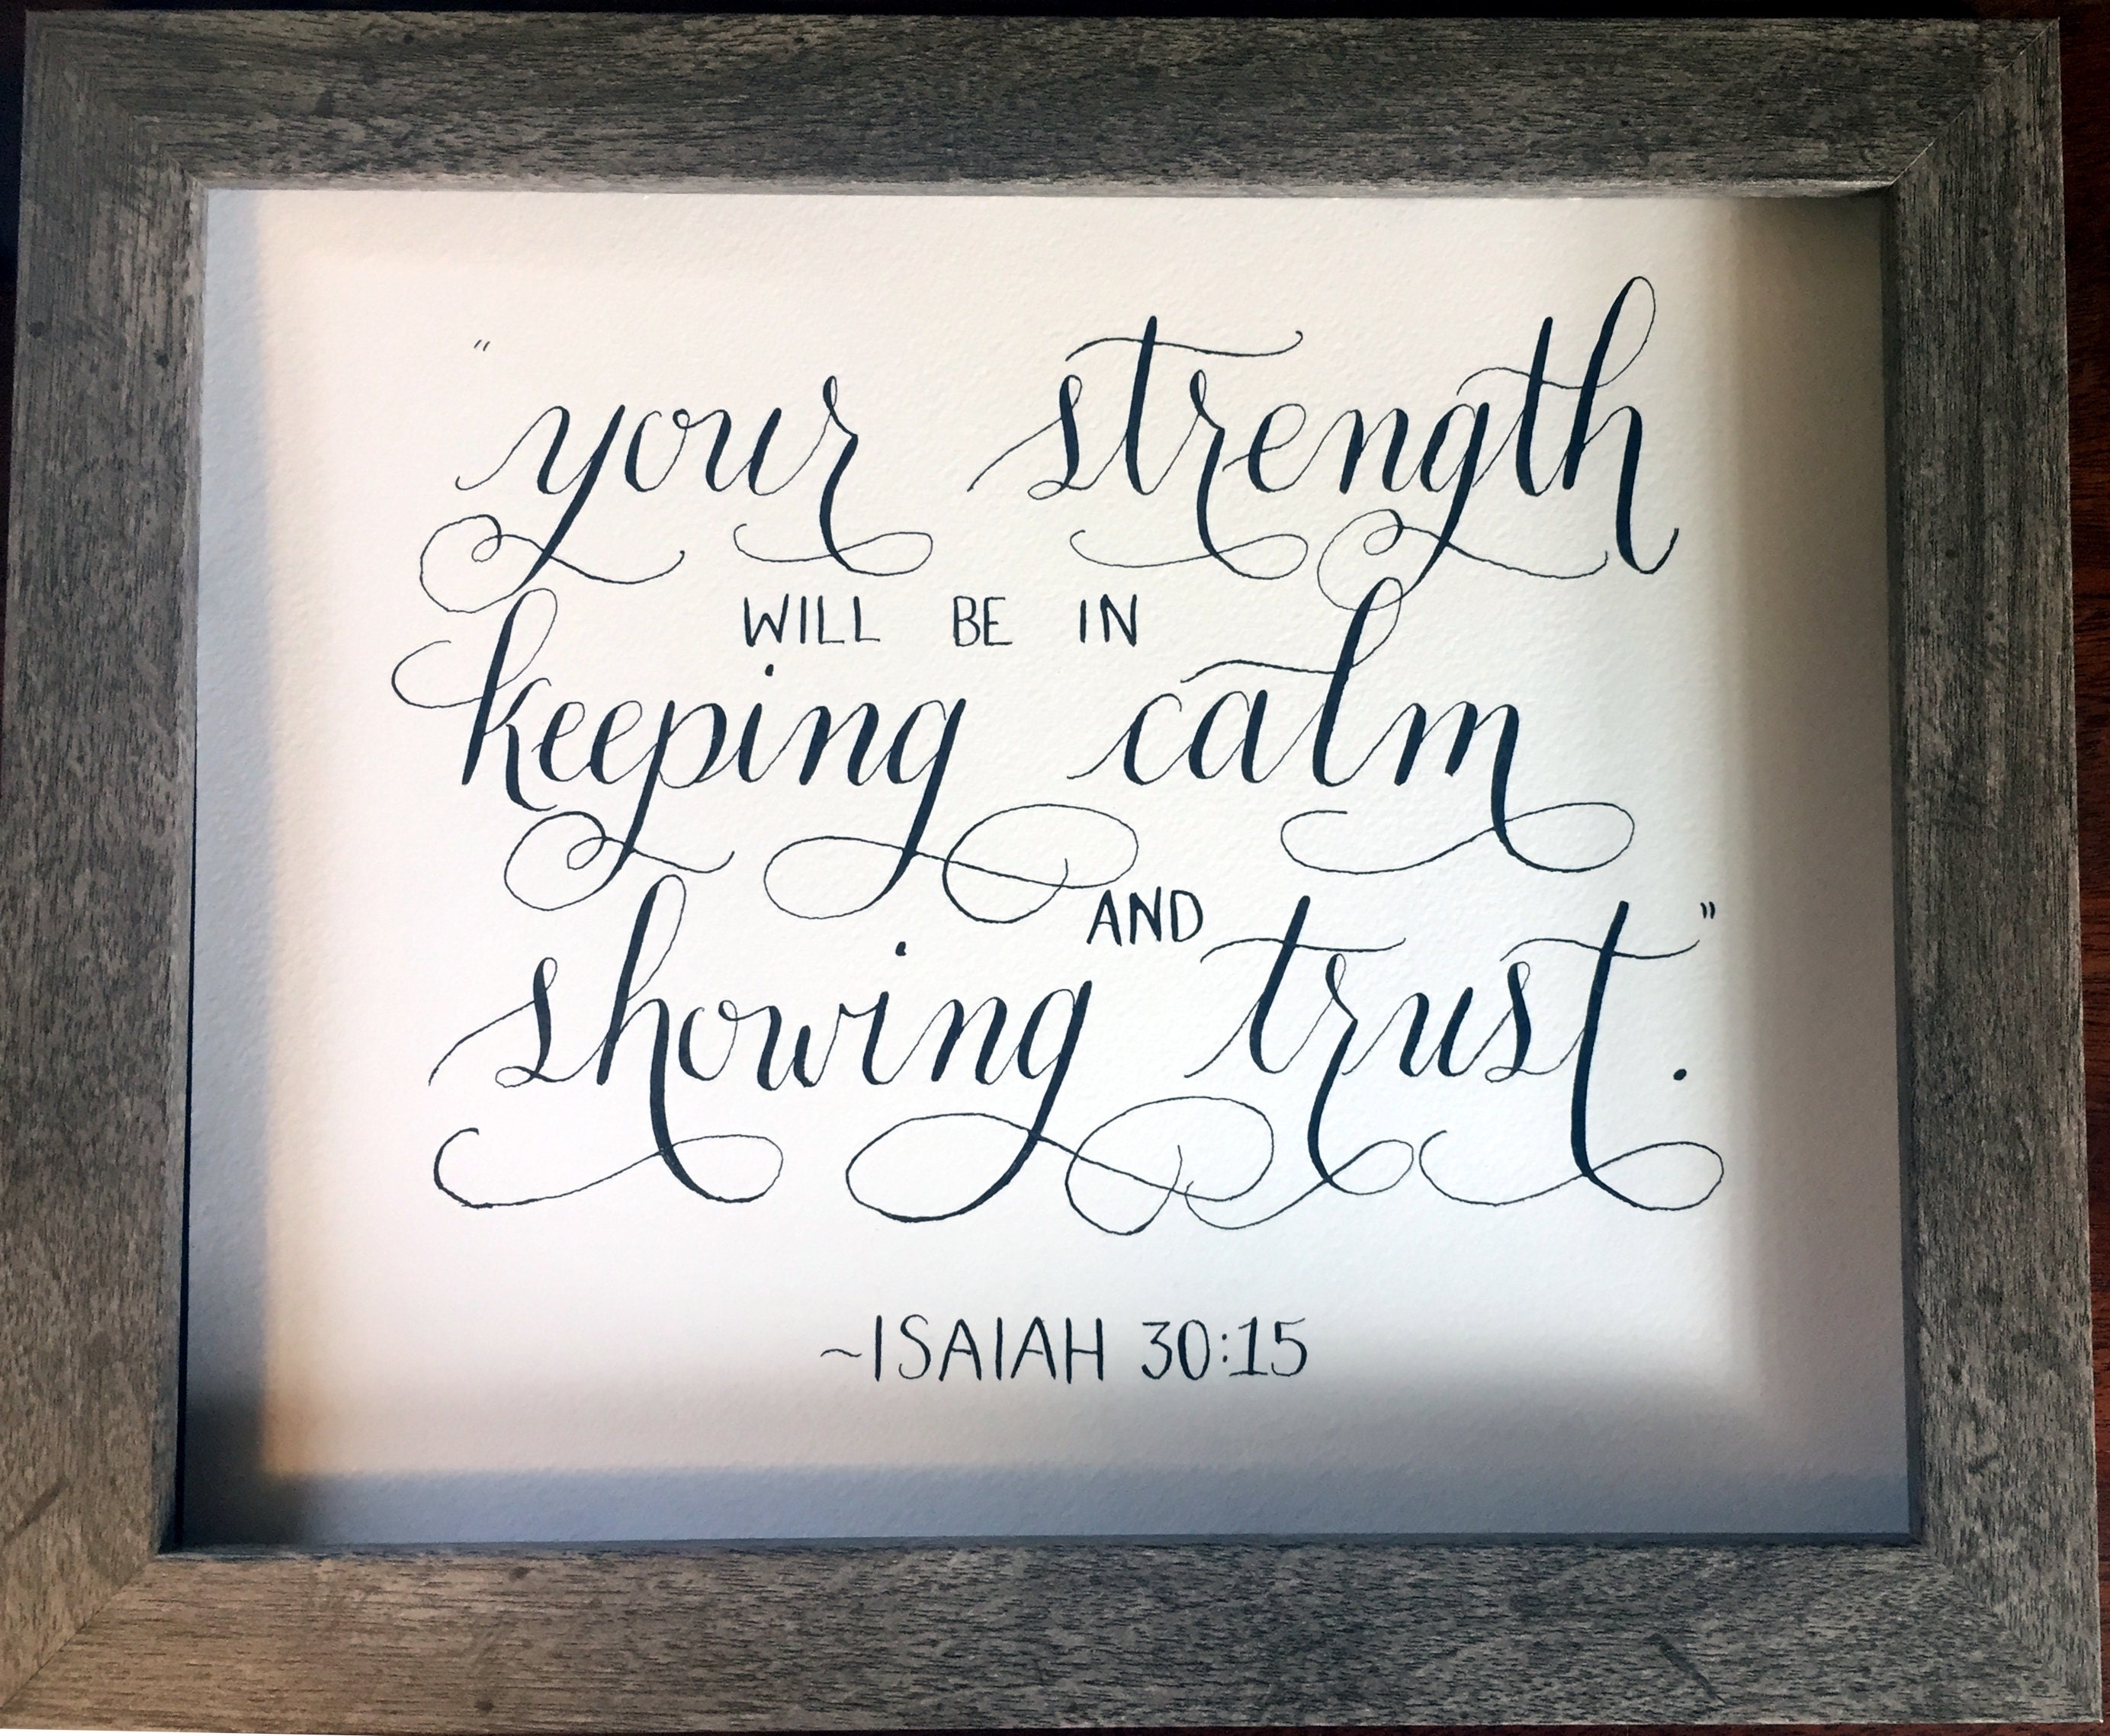 "your strength
WILL BE IN
keeping calm
AND
showing trust."
~ISAIAH 30:15